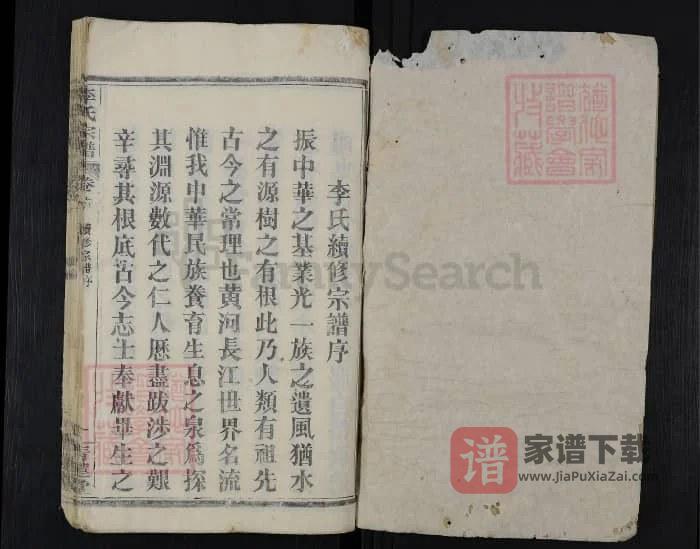 李氏續修宗譜序
振中華之基業光一族之遺風猶水
之有源樹之有根此乃人類有祖先
古今之常理也黄河長江世界名流
惟我中華民族養育生息之泉爲探
其淵源數代之仁人歷盡跋涉之艱
辛尋其根底古今志士奉獻畢生之
李氏宗譜
卷首
續修宗譜序
FamilySearch
譜
家谱下载
www.JiaPuXiaZai.com